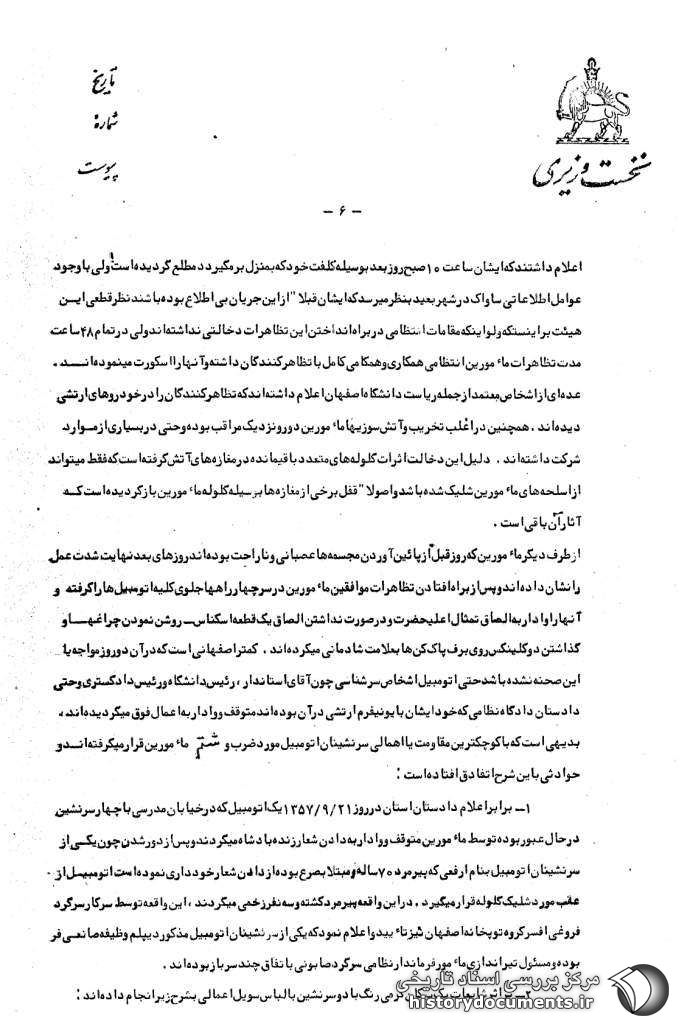 تاریخ
شماره
پیوست
نخست وزیری
- ۶ -
اعلام داشتند که ایشان ساعت ۱۰ صبح روز بعد بوسیله کلفت خود که بمنزل برمیگردد مطلع گردیده است ولی با وجود
عوامل اطلاعاتی ساواک در شهر بعید بنظر میرسد که ایشان قبلا" از این جریان بی اطلاع بوده باشند نظر قطعی ایـن
هیئت بر اینستکه ولو اینکه مقامات انتظامی در براه انداختن این تظاهرات دخالتی نداشته اند ولی در تمام ۴۸ ساعت
مدت تظاهرات ماٴمورین انتظامی همکاری و همگامی کامل با تظاهرکنندگان داشته و آنها را اسکورت مینموده انـد .
عده ای از اشخاص معتمد از جمله ریاست دانشگاه اصفهان اعلام داشته اند که تظاهرکنندگان را در خودروهای ارتشی
دیده اند . همچنین در اغلب تخریب و آتش سوزیها ماٴمورین دور و نزدیک مراقب بوده و حتی در بسیاری از مـوارد
شرکت داشته اند . دلیل این دخالت اثرات گلوله های متعدد باقیمانده در مغازه های آتش گرفته است که فقط میتواند
از اسلحه های ماٴمورین شلیک شده باشد و اصولا" قفل برخی از مغازه ها بوسیله گلوله ماٴمورین باز گردیده است کـه
آثار آن باقی است .
از طرف دیگر ماٴمورین که روز قبل از پائین آوردن مجسمه ها عصبانی و ناراحت بوده اند روزهای بعد نهایت شدت عمل
را نشان داده اند و پس از براه افتادن تظاهرات موافقین ماٴمورین در سرچهارراهها جلوی کلیه اتومبیل ها را گرفته و
آنها را وادار به الصاق تمثال اعلیحضرت و در صورت نداشتن الصاق یک قطعه اسکناس ـ روشن نمودن چراغهـا و
گذاشتن دو کلینکس روی برف پاک کن ها بعلامت شادمانی میکرده اند . کمتر اصفهانی است که در آن دو روز مواجه با
این صحنه نشده باشد حتی اتومبیل اشخاص سرشناسی چون آقای استاندار ، رئیس دانشگاه و رئیس دادگستری و حتی
دادستان دادگاه نظامی که خود ایشان با یونیفرم ارتشی در آن بوده اند متوقف و وادار به اعمال فوق میگردیده اند ،
بدیهی است که با کوچکترین مقاومت یا اهمالی سرنشینان اتومبیل مورد ضرب و شتم ماٴمورین قرار میگرفته انـد و
حوادثی باین شرح اتفاق افتاده است :
۱ـ برابر اعلام دادستان استان در روز ۱۳۵۷/۹/۲۱ یک اتومبیل که در خیابان مدرسی با چهار سرنشین
در حال عبور بوده توسط ماٴمورین متوقف و وادار به دادن شعار زنده باد شاه میگردند و پس از دور شدن چون یکـی از
سرنشینان اتومبیل بنام ارفعی که پیرمرد ۷۰ ساله و مبتلا بصرع بوده از دادن شعار خودداری نموده است اتومبیـل از
عقب مورد شلیک گلوله قرار میگیرد . در این واقعه پیرمرد کشته و سه نفر زخمی میگردند ، این واقعه توسط سرکار سرگرد
فروغی افسر گروه توپخانه اصفهان نیز تاٴیید و اعلام نمود که یکی از سرنشینان اتومبیل مذکور دیپلم وظیفه صانعی فر
بوده و مسئول تیراندازی ماٴمور فرماندار نظامی سرگرد صابونی با تفاق چند سرباز بوده اند .
۲ـ برابر شایعات یک پیکان کرمی رنگ با دو سرنشین با لباس سویل اعمالی بشرح زیر انجام داده اند :
مرکز بررسی اسناد تاریخی
historydocuments.ir